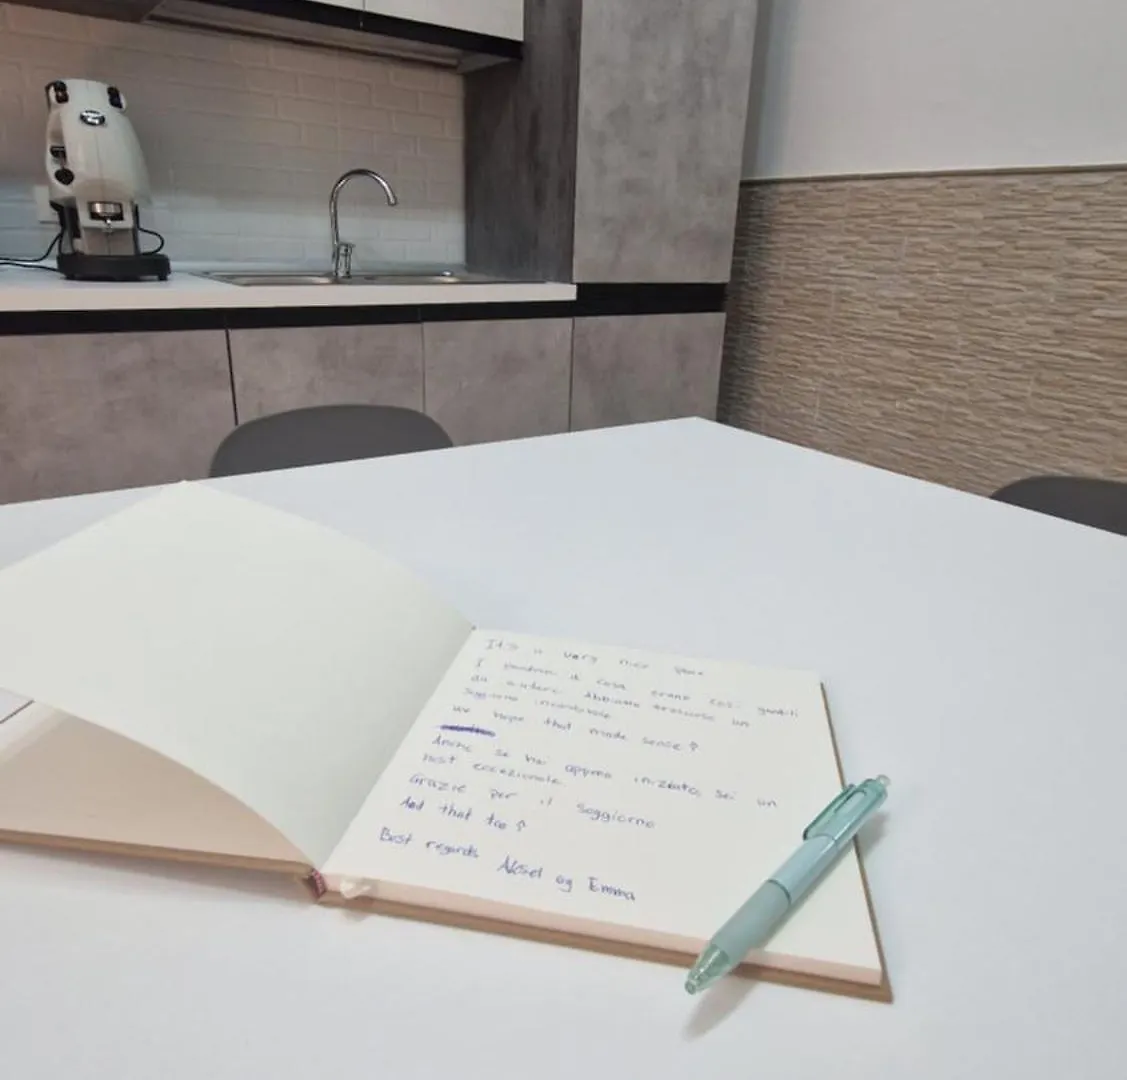 It's a very nice
I padroni di casa erano così gentili
da aiutare. Abbiamo trascorso un
soggiorno incantevole
we hope that made sense?
Anche se hai appena iniziato, sei un
host eccezionale.
Grazie per il soggiorno
And that too?
Best regards Aksel og Emma